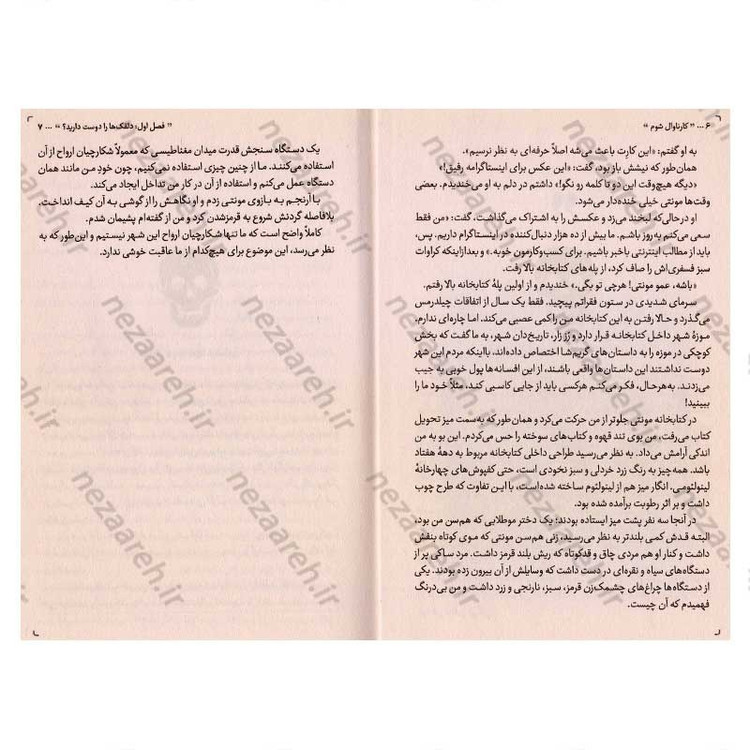 ۶ ... " کارناوال شوم "
به او گفتم: «این کارت باعث می‌شه اصلاً حرفه‌ای به نظر نرسیم».
همان‌طور که نیشش باز بود، گفت: «این عکس برای اینستاگرامه رفیق!»
«دیگه هیچ‌وقت این دو تا کلمه رو نگو!» داشتم در دلم به او می‌خندیدم. بعضی
وقت‌ها مونتی خیلی خنده‌دار می‌شود.
او درحالی‌که لبخند می‌زد و عکسش را به اشتراک می‌گذاشت، گفت: «من فقط
سعی می‌کنم به‌روز باشم. ما بیش از ده هزار دنبال‌کننده در اینستاگرام داریم. پس،
باید از مطالب اینترنتی باخبر باشیم. برای کسب‌وکارمون خوبه.» و بعدازاینکه کراوات
سبز فسفری‌اش را صاف کرد، از پله‌های کتابخانه بالا رفت.
«باشه، عمو مونتی! هرچی تو بگی.» خندیدم و از اولین پلهٔ کتابخانه بالا رفتم.
سرمای شدیدی در ستون فقراتم پیچید. فقط یک سال از اتفاقات چیلدرمس
می‌گذرد و حالا رفتن به این کتابخانه من را کمی عصبی می‌کند. اما چاره‌ای ندارم.
موزهٔ شهر داخل کتابخانه قرار دارد و رُز زار، تاریخ‌دان شهر، به ما گفت که بخش
کوچکی در موزه را به داستان‌های گریم‌شا اختصاص داده‌اند. بااینکه مردم این شهر
دوست نداشتند این داستان‌ها واقعی باشند، از این افسانه‌ها پول خوبی به جیب
می‌زدند. به‌هرحال، فکر می‌کنم هرکسی باید از جایی کاسبی کند، مثلاً خود ما را
ببینید!
در کتابخانه مونتی جلوتر از من حرکت می‌کرد و همان‌طور که به‌سمت میز تحویل
کتاب می‌رفت، من بوی تند قهوه و کتاب‌های سوخته را حس می‌کردم. این بو به من
اندکی آرامش می‌داد. به نظر می‌رسید طراحی داخلی کتابخانه مربوط به دههٔ هفتاد
باشد. همه‌چیز به رنگ زرد خردلی و سبز نخودی است، حتی کفپوش‌های چهارخانهٔ
لینولئومی. انگار میز هم از لینولئوم ساخته شده‌است، با این تفاوت که طرح چوب
داشت و بر اثر رطوبت برآمده شده بود.
در آنجا سه نفر پشت میز ایستاده بودند؛ یک دختر موطلایی که هم‌سن من بود،
البته قدش کمی بلندتر به نظر می‌رسید، زنی هم‌سن مونتی که موی کوتاه بنفش
داشت و کنار او هم مردی چاق و قدکوتاه که ریش بلند قرمز داشت. مرد ساکی پر از
دستگاه‌های سیاه و نقره‌ای در دست داشت که وسایلش از آن بیرون زده بودند. یکی
از دستگاه‌ها چراغ‌های چشمک‌زن قرمز، سبز، نارنجی و زرد داشت و من بی‌درنگ
فهمیدم که آن چیست.
" فصل اول: دلقک‌ها را دوست دارید؟ " ... ۷
یک دستگاه سنجش قدرت میدان مغناطیسی که معمولاً شکارچیان ارواح از آن
استفاده می‌کنند. ما از چنین چیزی استفاده نمی‌کنیم، چون خودِ من مانند همان
دستگاه عمل می‌کنم و استفاده از آن در کار من تداخل ایجاد می‌کند.
با آرنجم به بازوی مونتی زدم و او نگاهش را از گوشی به آن کیف انداخت.
بلافاصله گردنش شروع به قرمزشدن کرد و من از گفته‌ام پشیمان شدم.
کاملاً واضح است که ما تنها شکارچیان ارواح این شهر نیستیم و این‌طور که به
نظر می‌رسد، این موضوع برای هیچ‌کدام از ما عاقبت خوشی ندارد.
nezaareh.ir
nezaareh.ir
nezaareh.ir
nezaareh.ir
nezaareh.ir
nezaareh.ir
nezaareh.ir
nezaareh.ir